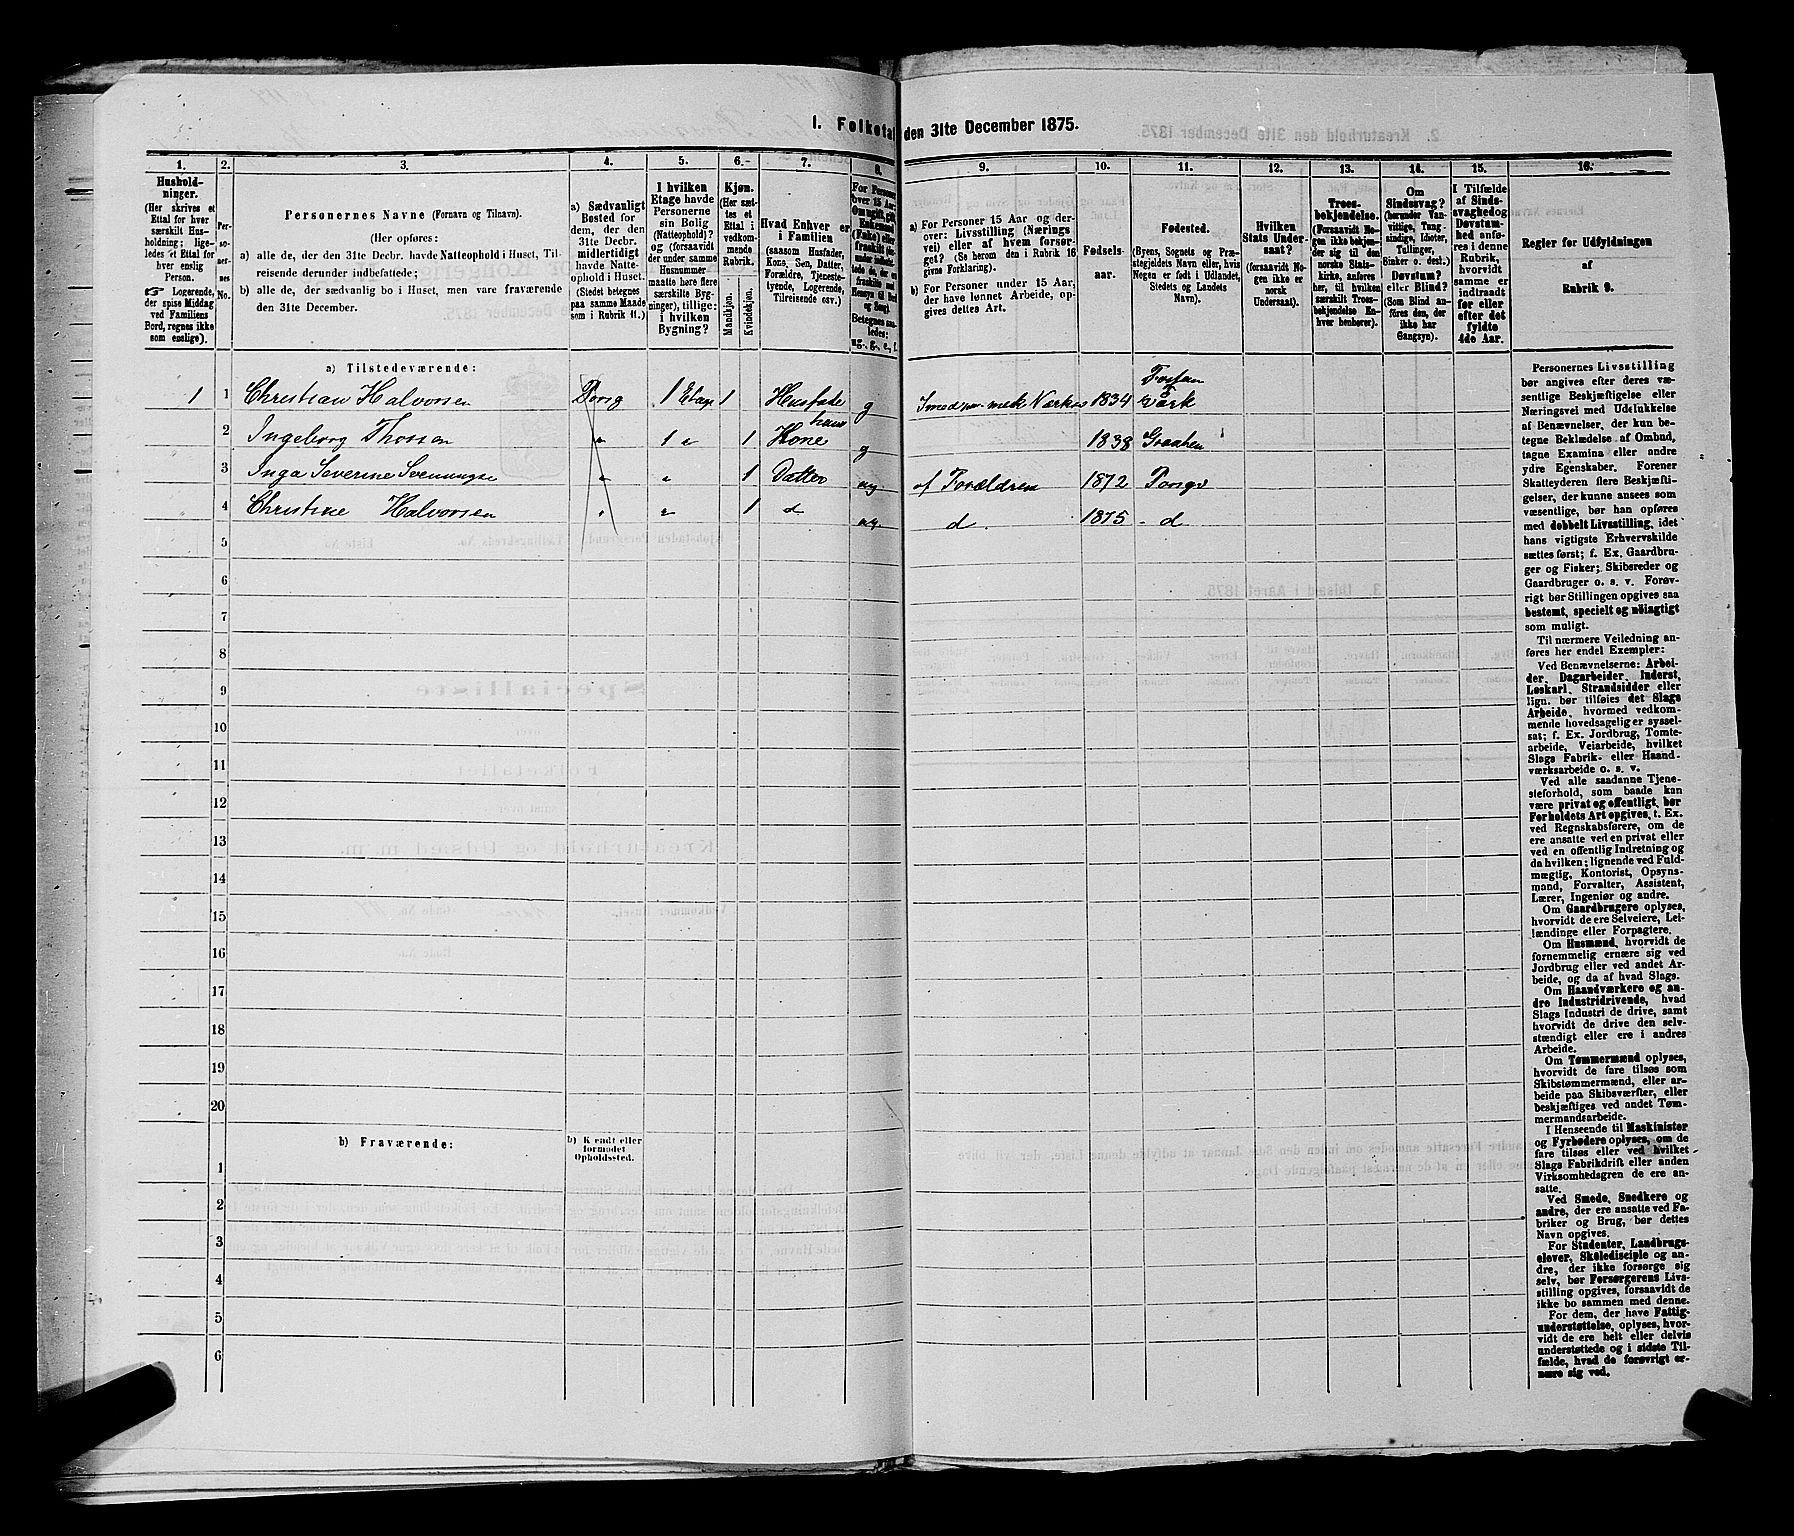 1. Folketal den 31te December 1875.
1. 2. 3. 4. 5. 6. 7. 8. 9. 10. 11. 12. 13. 14. 15. 16.
Hushold-
ninger.
(Her skrives et
Ettal for hver
særskilt Hus-
holdning; lige-
ledes et Ettal for
hver enslig
Person.
☞ Logerende,
der spise Middag
ved Familiens
Bord, regnes ikke
som enslige).
Per-
so-
ner-
nes
No.
Personernes Navne (Fornavn og Tilnavn).
(Her opføres:
a) alle de, der den 31te Decbr. havde Natteophold i Huset, Til-
reisende derunder indbefattede;
b) alle de, der sædvanlig bo i Huset, men vare fraværende
den 31te December.
a) Sædvanligt
Bosted for
dem, der den
31te Decbr.
midlertidigt
havde Natte-
ophold i Huset.
(Stedet betegnes
paa samme Maade
som i Rubrik 11.)
I hvilken
Etage havde
Personerne
sin Bolig
(Natteophold)?
og (forsaavidt
der under samme
Husnummer
maatte høre flere
særskilte Byg-
ninger), tillige:
i hvilken
Bygning?
Kjøn.
(Her sæt-
tes et
Ettal i
vedkom-
mende
Rubrik.
Mandkjøn.
Kvindekjøn.
Hvad Enhver er
i Familien
(saasom Husfader,
Kone, Søn, Datter,
Forældre, Tjeneste-
tyende, Logerende,
Tilreisende osv.)
For Personer
over 15 Aar:
Om ugift, gift,
Enkemand
(Enke) eller
fraskilt
Betegnes saa-
ledes:
ug., g., e., f.
a) For Personer 15 Aar og der-
over: Livsstilling (Nærings
vei) eller af hvem forsør-
get? (Se herom den i Rubrik 16
givne Forklaring).
b) For Personer under 15 Aar,
der have lønnet Arbeide, op-
gives dettes Art.
Fødsels-
aar.
Fødested.
(Byens, Sognets og Præ-
stegjeldets Navn eller, hvis
Nogen er født i Udlandet,
Stedets og Landets
Navn).
Hvilken
Stats Under-
saat?
(forsaavidt No-
gen ikke er
norsk
Undersaat).
Troes-
bekjendelse.
(Forsaavidt No-
gen ikke bekjen-
der sig til den
norske Stats-
kirke, anføres
her, til hvilken
særskilt Troes-
bekjendelse En-
hver henhører).
Om
Sindssvag?
(herunder Van-
vittige, Tung-
sindige, Idioter,
Tullinger,
Sinker o. desl.)
Døvstum?
eller Blind?
(Som Blind an-
føres den, der
ikke har
Gangsyn).
I Tilfælde
af Sinds-
svaghed og
Døvstum-
hed anfø-
res i denne
Rubrik,
hvorvidt
samme er
indtraadt
før eller
efter det
fyldte
4de Aar.
Regler for Udfyldningen
af
Rubrik 9.
a) Tilstedeværende:
1 1 Christian Halvorsen Porsg 1 Etage 1 Husfade g 1834
2 Ingeborg Thossen " 1 " 1 Kone g 1838
3 Inga Severine Svenningse " " 1 Datter ug af Forældrene 1872 Porsgr
4 Christine Halvorsen " " 1 d ug. d. 1875 - d
5
6
7
8
9
10
11
12
13
14
15
16
17
18
19
20
b) Fraværende:
b) Kjendt eller
formodet
Opholdssted.
1
2
3
4
5
6
Personernes Livsstilling
bør angives efter deres væ-
sentlige Beskjæftigelse eller
Næringsvei med Udelukkelse
af Benævnelser, der kun be-
tegne Beklædelse af Ombud,
tagne Examina eller andre
ydre Egenskaber. Forener
Skatteyderen flere Beskjæfti-
gelser, der kunne ansees som
væsentlige, bør han opføres
med dobbelt Livsstilling, idet
hans vigtigste Erhvervskilde
sættes først; f. Ex. Gaardbru-
ger og Fisker; Skibsreder og
Gaardbruger o. s. v. Forøv-
rigt bør Stillingen opgives saa
bestemt, specielt og nøiagtigt
som muligt.
Til nærmere Veiledning an-
føres her endel Exempler:
Ved Benævnelserne: Arbei-
der, Dagarbeider, Inderst,
Løskarl, Strandsidder eller
lign. bør tilføies det Slags
Arbeide, hvormed vedkom-
mende hovedsagelig er syssel-
sat; f. Ex. Jordbrug, Tomte-
arbeide, Veiarbeide, hvilket
Slags Fabrik- eller Haand-
værksarbeide o. s. v.
Ved alle saadanne Tjene-
steforhold, som baade kan
være privat og offentligt, bør
Forholdets Art opgives, t. Ex.
ved Regnskabsførere, om de
ere ansatte ved en privat eller
ved en offentlig Indretning og
da hvilken; lignende ved Fuld-
mægtig, Kontorist, Opsyns-
mand, Forvalter, Assistent,
Lærer, Ingeniør og andre.
Om Gaardbrugere oplyses,
hvorvidt de ere Selveiere, Lei-
lændinge eller Forpagtere.
Om Husmænd, hvorvidt de
fornemmelig ernære sig ved
Jordbrug eller ved andet Ar-
beide, og da af hvad Slags.
Om Haandværkere og an-
dre Industridrivende, hvad
Slags Industri de drive, samt
hvorvidt de drive den selv-
stændigt eller ere i andres
Arbeide.
Om Tømmermænd oplyses,
hvorvidt de fare tilsøs som
Skibstømmermænd, eller ar-
beide paa Skibsværfter, eller
beskjæftiges ved andet Tøm-
mermandsarbeide.
I Henseende til Maskinister
og Fyrbødere oplyses, om de
fare tilsøs eller ved hvilket
Slags Fabrikdrift eller anden
Virksomhedsgren de ere an-
satte.
Ved Smede, Snedkere og
andre, der ere ansatte ved Fa-
briker og Brug, bør dettes
Navn opgives.
For Studenter, Landbrugs-
elever, Skoledisciple og an-
dre, der ikke forsørge sig
selv, bør Forsørgerens Livs-
stilling opgives, forsaavidt de
ikke bo sammen med denne.
For dem, der have Fattig-
understøttelse, oplyses, hvor-
vidt de ere helt eller delvis
understøttede og i sidste Til-
fælde, hvad de forøvrigt er-
nære sig ved.